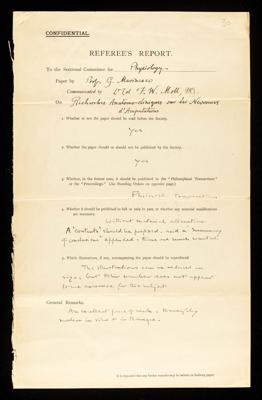 30
CONFIDENTIAL.
REFEREE'S REPORT.
To the Sectional Committee for Physiology
Paper by Prof. G. Marinesco
Communicated by Lt Col F. W. Mott, FRS.
On Recherches Anatomo-cliniques sur les Névromes
d'Amputations
1. Whether or not the paper should be read before the Society.
Yes
2. Whether the paper should or should not be published by the Society.
Yes
3. Whether, in the former case, it should be published in the "Philosophical Transactions"
or the "Proceedings." (See Standing Orders on opposite page.)
Philosoph. Transactions
4. Whether it should be published in full or only in part, or whether any essential modifications
are necessary.
Without material alteration
A 'contents' should be prefixed and a Summary
of conclusions appended: these are much wanted.
5. Which illustrations, if any, accompanying the paper should be reproduced
The illustrations can be reduced in
size; but their number does not appear
to me excessive for the subject.
General Remarks.
An excellent piece of work. thoroughly
modern in view & in technique.
It is requested that any further remarks may be written on foolscap paper.